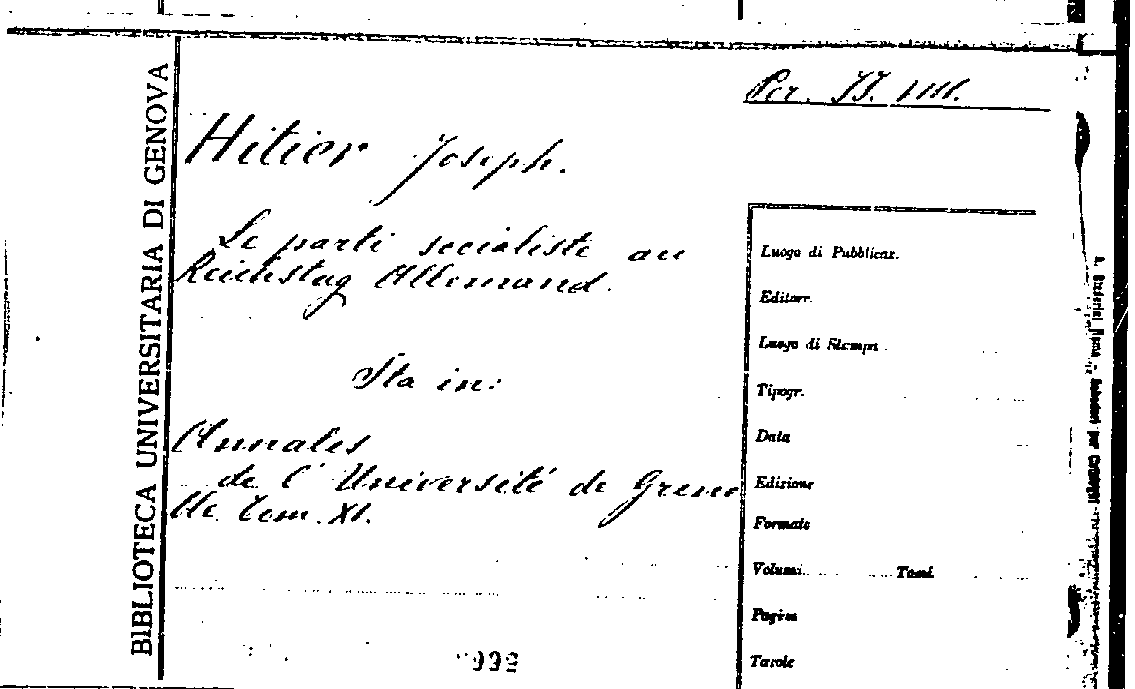 BIBLIOTECA UNIVERSITARIA DI GENOVA
Per. JJ.
Hitier Joseph.
Le parti socialiste au
Reichstag Allemand.
Sta in:
Annales
de l'Université de Greno
ble. Tom. XI.
Luogo di Pubblicaz.
Editore
Luogo di Stampa
Tipogr.
Data
Edizione
Formato
Volumi Tomi
Pagine
Tavole